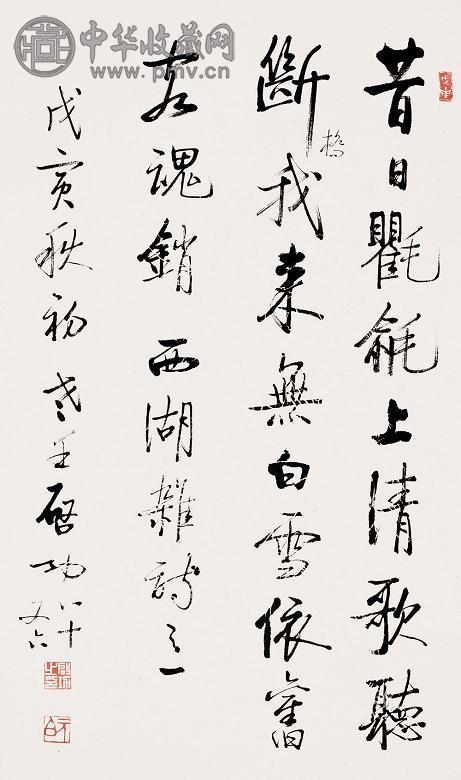 中华收藏网
www.pmv.cn
昔日氍毹上清歌聽
斷橋我來無白雪依舊
有魂銷 西湖雜詩之一
戊寅秋初 啓功 八十
又六